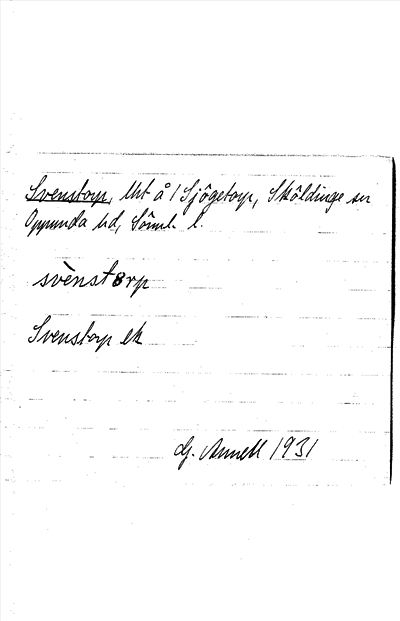 Svenstorp, lht å 1 Sjögetorp, Sköldinge sn
Oppunda hd, Sörml. l.
svènstɵrp
Svenstorp ek
G. Annell 1931